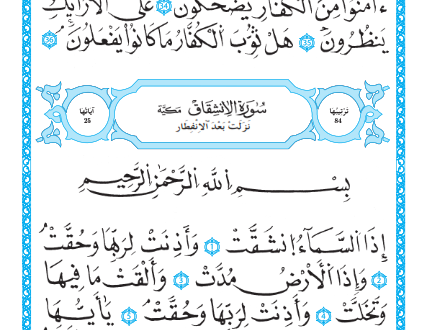 ءَامَنُوا۟ مِنَ ٱلْكُفَّارِ يَضْحَكُونَ 34 عَلَى ٱلْأَرَآئِكِ
يَنظُرُونَ 35 هَلْ ثُوِّبَ ٱلْكُفَّارُ مَا كَانُوا۟ يَفْعَلُونَ 36
تَرْتِيبُهَا 84
سُورَةُ الِانْشِقَاقِ مَكِيَّة
نَزَلَتْ بَعْدَ الِانْفِطَار
آيَاتُهَا 25
بِسْمِ ٱللَّهِ ٱلرَّحْمَٰنِ ٱلرَّحِيمِ
إِذَا ٱلسَّمَآءُ ٱنشَقَّتْ 1 وَأَذِنَتْ لِرَبِّهَا وَحُقَّتْ
2 وَإِذَا ٱلْأَرْضُ مُدَّتْ 3 وَأَلْقَتْ مَا فِيهَا
وَتَخَلَّتْ 4 وَأَذِنَتْ لِرَبِّهَا وَحُقَّتْ 5 يَٰٓأَيُّهَا